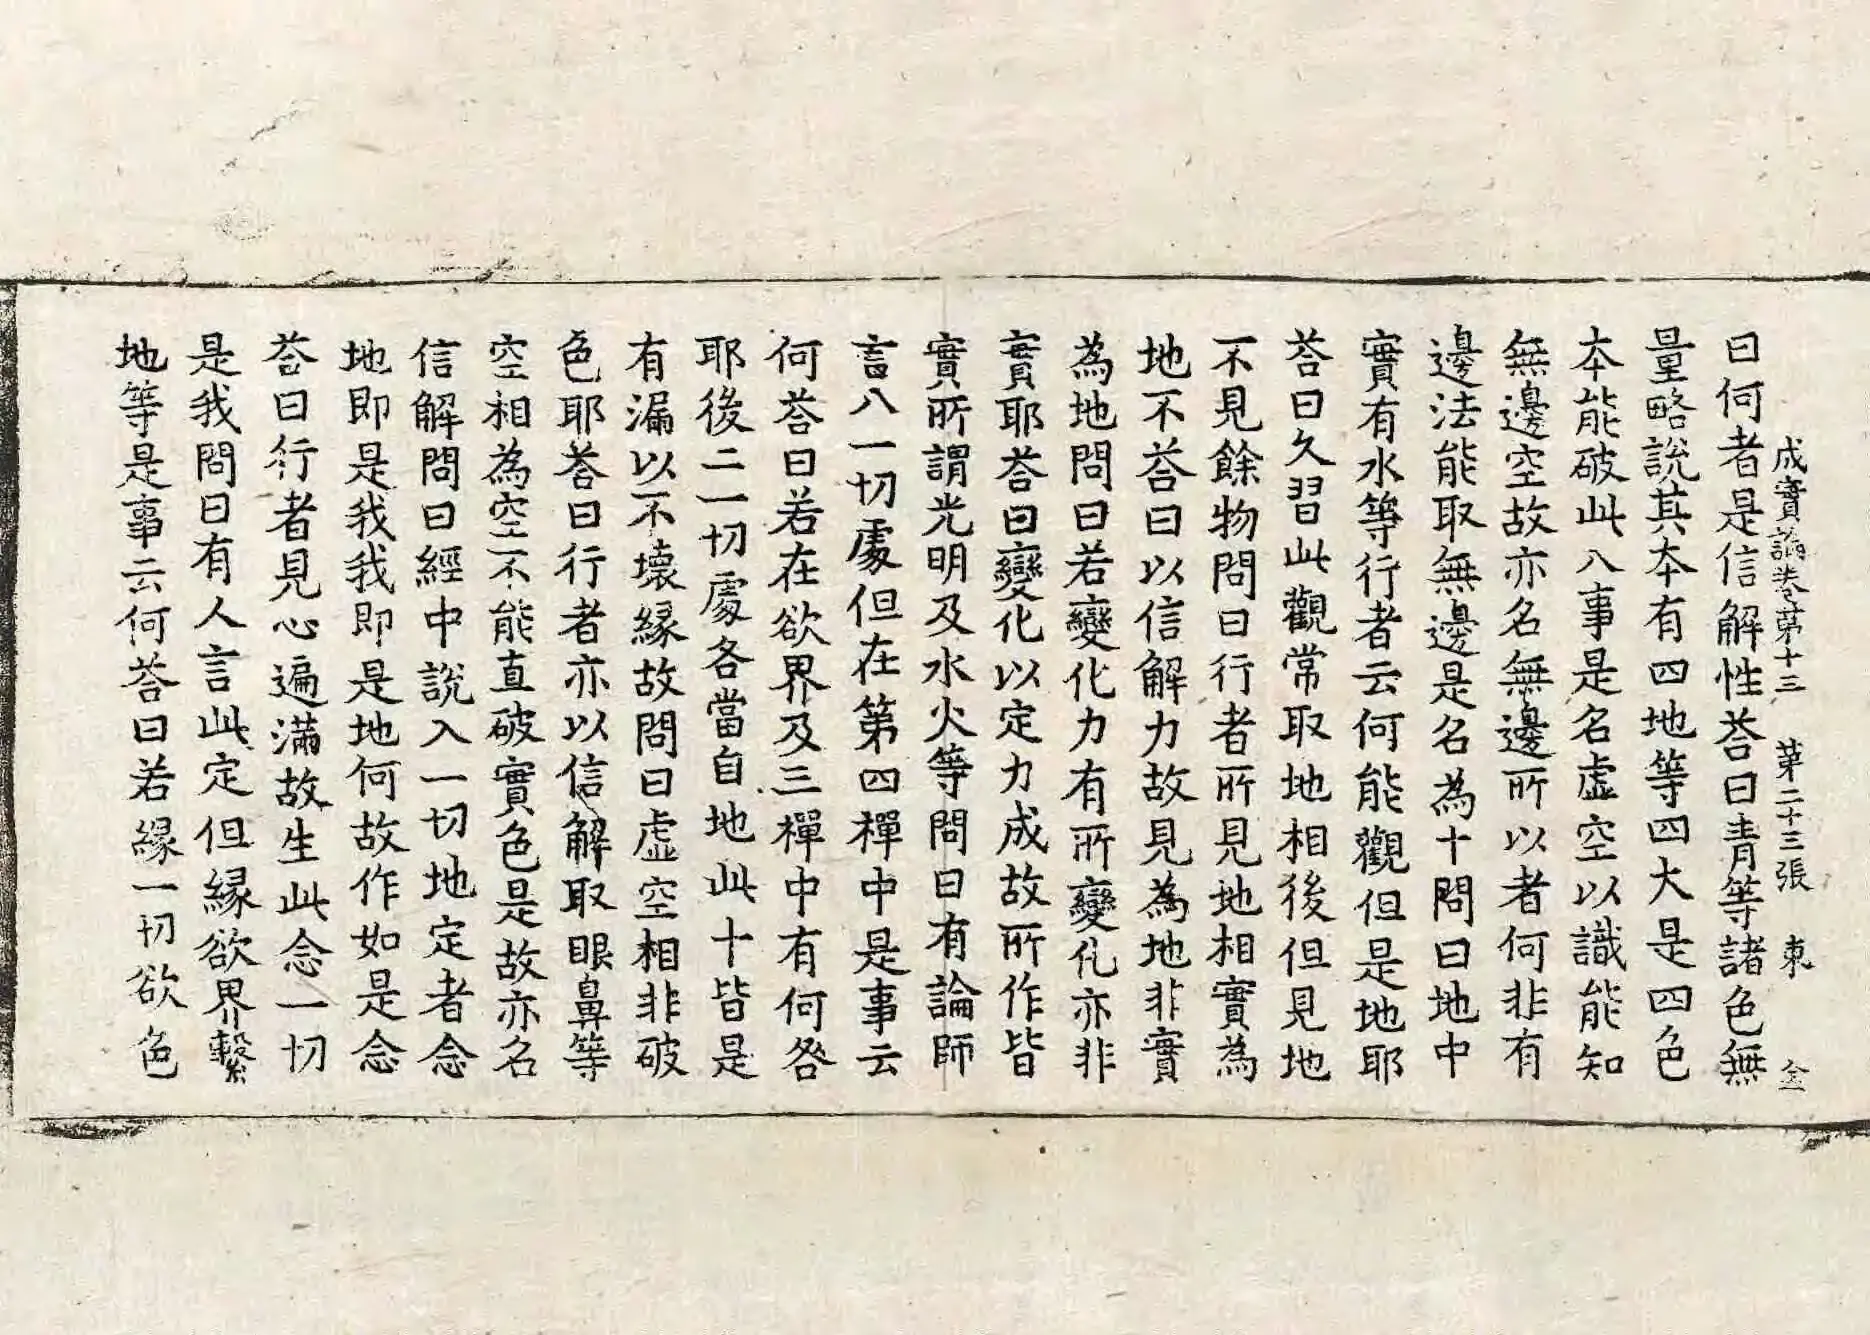 成實論卷第十三　第二十三張　東　仝
曰何者是信解性荅曰青等諸色無
量略說其本有四地等四大是四色
本能破此八事是名虛空以識能知
無邊空故亦名無邊所以者何非有
邊法能取無邊是名為十問曰地中
實有水等行者云何能觀但是地耶
荅曰久習此觀常取地相後但見地
不見餘物問曰行者所見地相實為
地不荅曰以信解力故見為地非實
為地問曰若變化力有所變化亦非
實耶荅曰變化以定力成故所作皆
實所謂光明及水火等問曰有論師
言八一切處但在第四禪中是事云
何荅曰若在欲界及三禪中有何咎
耶後二一切處各當自地此十皆是
有漏以不壞緣故問曰虛空相非破
色耶荅曰行者亦以信解取眼鼻等
空相為空不能直破實色是故亦名
信解問曰經中說入一切地定者念
地即是我我即是地何故作如是念
荅曰行者見心遍滿故生此念一切
是我問曰有人言此定但緣欲界繫
地等是事云何荅曰若緣一切欲色